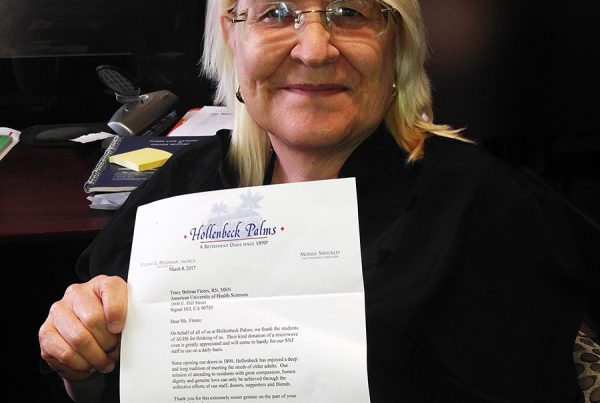 Hollenbeck Palms
A RETIREMENT OASIS SINCE 1890
WILLIAM G. HEIDEMAN, FACHCA
MORRIS SHOCKLEY
March 8, 2017
Tracy Belman Flores, RN, MSN
American University of Health Sciences
1600 E. Hill Street
Signal Hill, CA 90755
Dear Ms. Flores:
On behalf of all of us at Hollenbeck Palms, we thank the students
of AUHS for thinking of us. Their kind donation of a microwave
oven is greatly appreciated and will come in handy for our SNF
staff to use on a daily basis.
Since opening our doors in 1890, Hollenbeck has enjoyed a deep
and long tradition of meeting the needs of older adults. Our
mission of attending to residents with great compassion, honest
dignity and genuine love can only be achieved through the
collective efforts of our staff, donors, supporters and friends.
Thank you for this extremely sweet gesture on the part of your